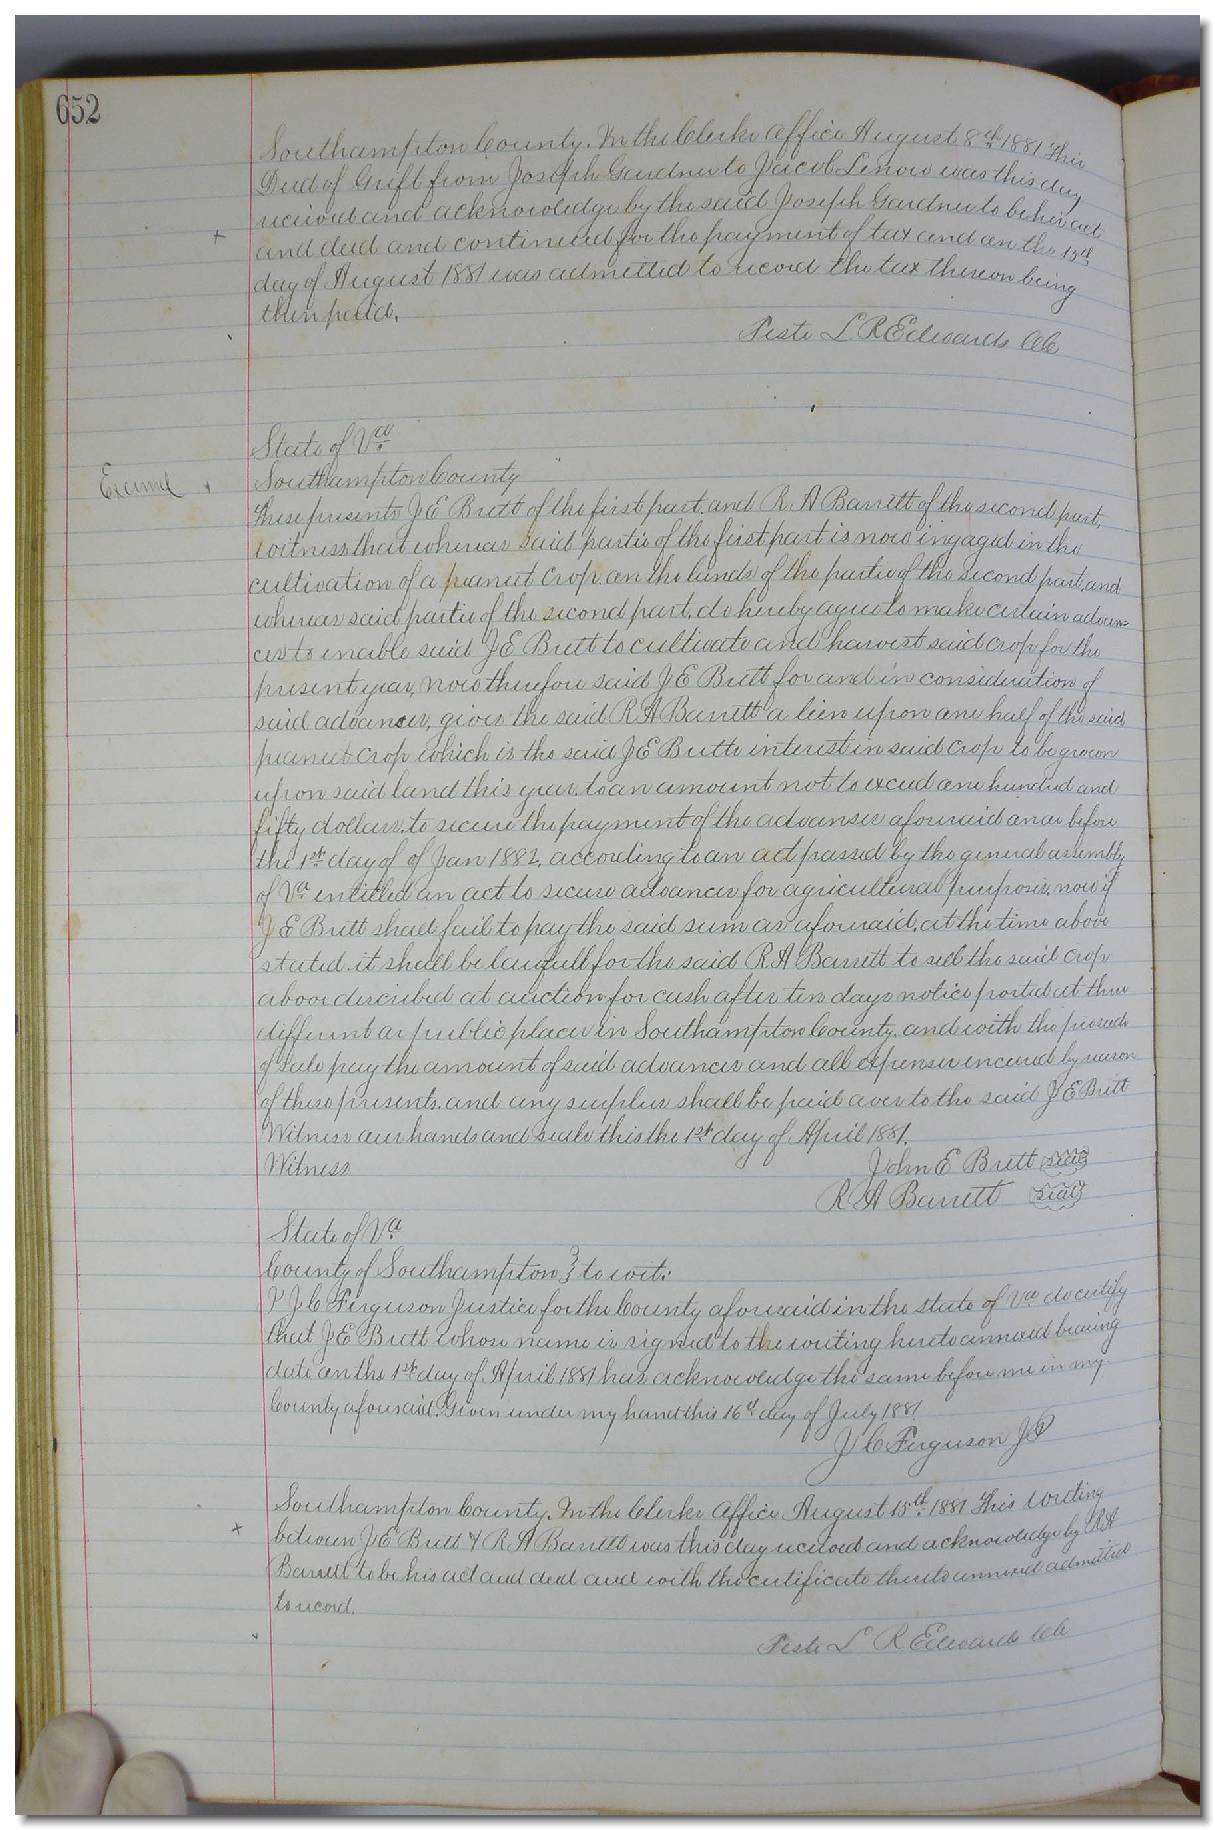 652
Southampton County. In the Clerks Office August 8th 1881 This
Deed of Grift from Joseph Gardner to Jacob Lenow was this day
received and acknowledge by the said Joseph Gardner to be his act
and deed and continued for the payment of tax and on the 15th
day of August 1881 was admitted to record the tax thereon being
then paid.
Teste L R Edwards CC
State of Va
Southampton County
Examd
These presents J E Britt of the first part, and R. A Barrett of the second part,
witness that whereas said partie of the first part is now ingaged in the
cultivation of a peanut crop on the lands of the partie of the second part, and
whereas said partie of the second part, do hereby agree to make certain advan-
ces to inable said J E Britt to cultivate and harvest said crop for the
present year, now therefore said J E Britt for and in consideration of
said advances, gives the said R A Barrett a lien upon one half of the said
peanut crop which is the said J E Britts interest in said crop to be grown
upon said land this year, to an amount not to exceed one hundred and
fifty dollars, to secure the payment of the advances aforesaid on or before
the 1st day of of Jan 1882, according to an act passed by the general assembly
of Va entitled an act to secure advances for agricultural purposes, now if
J E Britt shall fail to pay the said sum as aforesaid, at the time above
stated it shall be lawfull for the said R A Barrett to sell the said crop
above described at auction for cash after ten days notice posted at three
different or public places in Southampton County, and with the proceeds
of sale pay the amount of said advances and all expenses incured by reason
of these presents, and any surplus shall be paid over to the said J E Britt
Witness our hands and seals this the 1st day of April 1881.
Witness John E Britt seal
R A Barrett seal
State of Va
County of Southampton } to wit:
I J C Ferguson Justice for the County aforesaid in the state of Va do certify
that J E Britt whose name is signed to the writing hereto annexed bearing
date on the 1st day of April 1881 has acknowledge the same before me in my
County aforesaid. Given under my hand this 16th day of July 1881
J C Ferguson J P
Southampton County. In the Clerks Office August 15th 1881 This writing
between J E Britt & R A Barrett was this day received and acknowledge by R A
Barrett to be his act and deed and with the certificate thereto annexed admitted
to record.
Teste L R Edwards CC